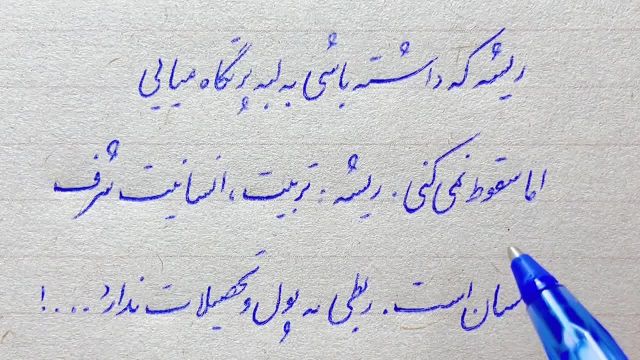 ریشه که داشته باشی به لبه پرتگاه میایی
اما سقوط نمی کنی. ریشه: تربیت، انسانیت شرف
است. ربطی به پول و تحصیلات ندارد....!